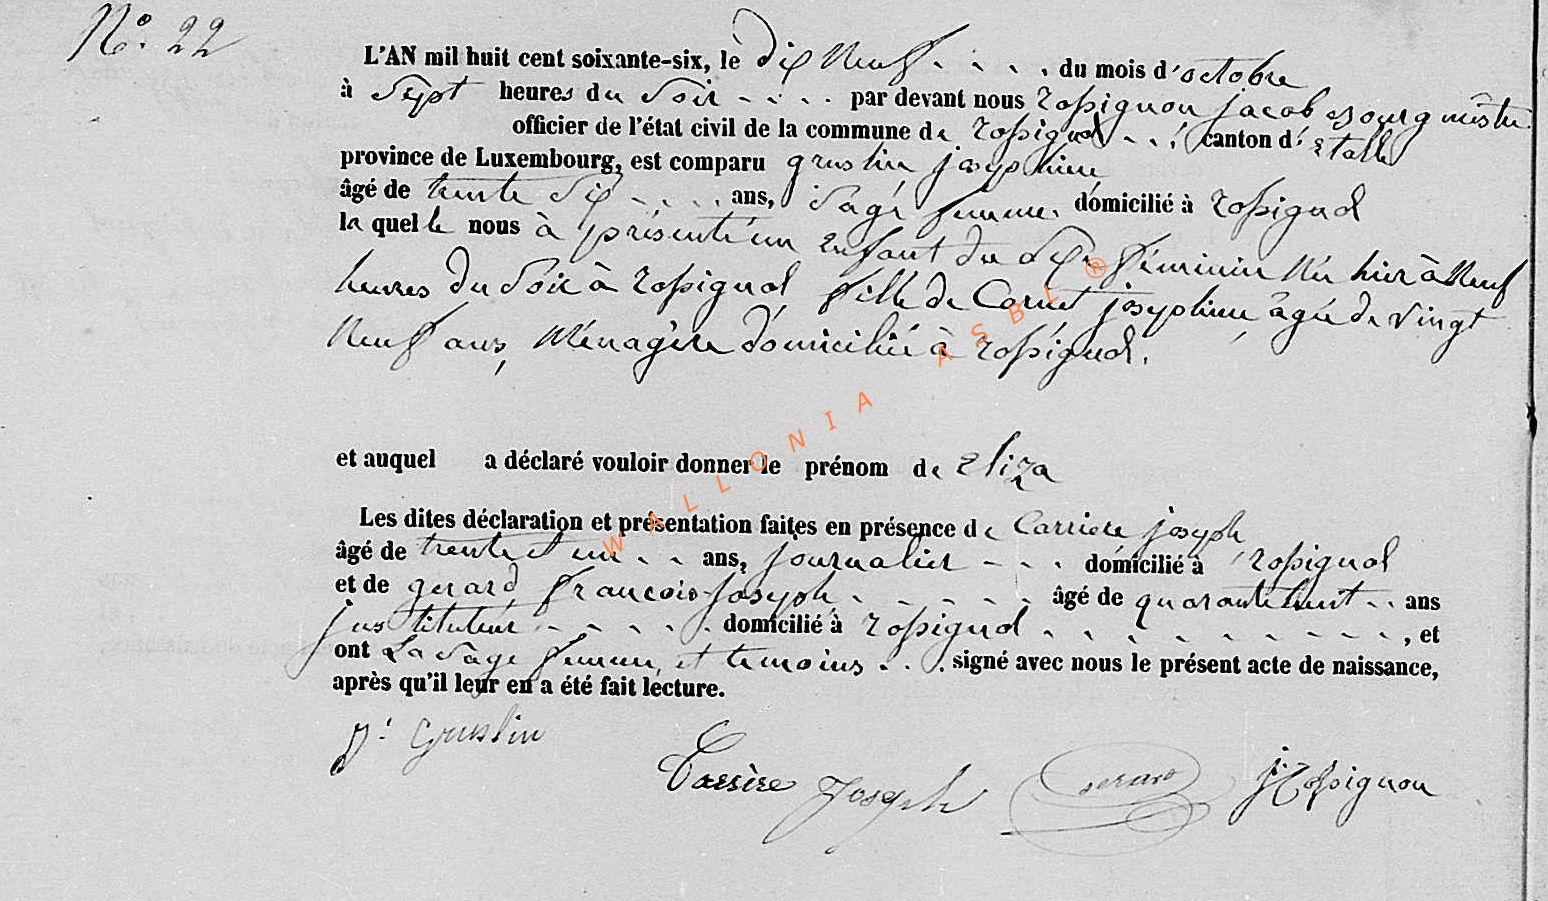 N° 22
L'AN mil huit cent soixante-six, le dix neuf du mois d'octobre
à Sept heures du Soir par devant nous rossignon jacob bourgmestre
officier de l'état civil de la commune de rossignol canton d'étalle
province de Luxembourg, est comparu grustin josephine
âgé de trente six ans, Sage femme domicilié à rossignol
la quelle nous à présenté un Enfant du Sexe féminin Née hier à Neuf
heures du Soir à rossignol, fille de Cornet josephine âgée de vingt
Neuf ans, Ménagère domiciliée à rossignol.
et auquel a déclaré vouloir donner le prénom de Eliza
Les dites déclaration et présentation faites en présence de Carriere joseph
âgé de trente et un ans, journalier domicilié à rossignol
et de gerard francois-joseph, âgé de quarante huit ans
justituteur domicilié à rossignol, et
ont La Sage femme, et temoins signé avec nous le présent acte de naissance,
après qu'il leur en a été fait lecture.
j. Grustin
Carrière Joseph Gerard j Rossignon
WALLONIA ASBL ®